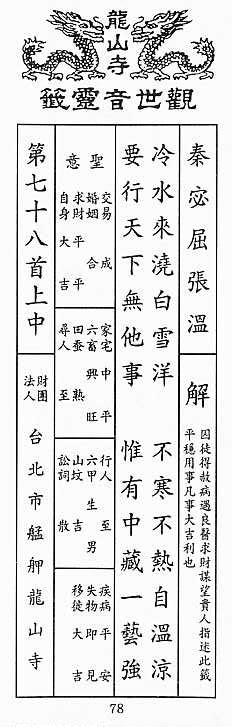 龍山寺
觀世音靈籤
秦宓屈張溫
解
因徒得赦病遇良醫求財謀望貴人指述此籤
平穩用事凡事大吉利也
冷水來澆白雪洋 不寒不熱自溫涼
要行天下無他事 惟有中藏一藝強
聖意
交易 成
婚姻 合
求財 平
自身 大吉
家宅 中平
六畜 興旺
田蚕 熟
尋人 至
行人 至
六甲 生男
山墳 吉
訟詞 散
疾病 平安
失物 即見
移徙 大吉
第七十八首上中
財團
法人
台北市艋舺龍山寺
78